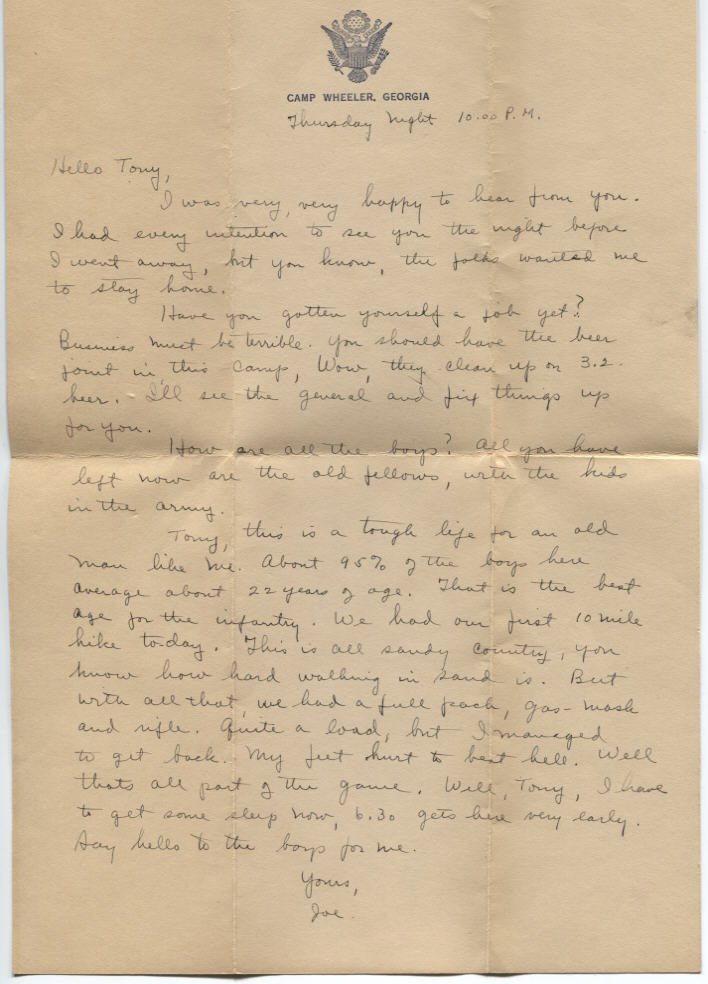 CAMP WHEELER, GEORGIA
Thursday Night 10.00 P.M.
Hello Tony,
I was very, very happy to hear from you.
I had every intention to see you the night before
I went away, but you know, the folks wanted me
to stay home.
Have you gotten yourself a job yet?
Business must be terrible. You should have the beer
joint in this camp, Wow, they clean up on 3.2.
beer. I'll see the general and fix things up
for you.
How are all the boys? All you have
left now are the old fellows, with the kids
in the army.
Tony, this is a tough life for an old
man like me. About 95% of the boys here
average about 22 years of age. That is the best
age for the infantry. We had our first 10 mile
hike to-day. This is all sandy country, you
know how hard walking in sand is. But
with all that, we had a full pack, gas-mask
and rifle. Quite a load, but I managed
to get back. My feet hurt to beat hell. Well
thats all part of the game. Well, Tony, I have
to get some sleep now, 6.30 gets here very early.
Say hello to the boys for me.
Yours,
Joe.